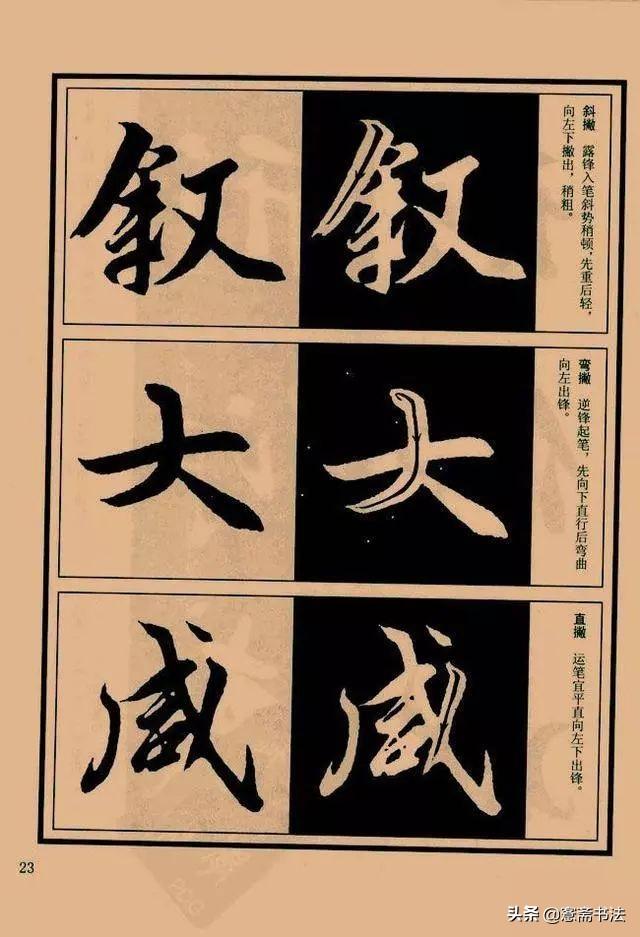 斜撇　露锋入笔斜势稍顿，先重后轻，
向左下撇出，稍粗。
叙
叙
弯撇　逆锋起笔，先向下直行后弯曲
向左出锋。
大
大
直撇　运笔宜平直向左下出锋。
咸
咸
23
头条 @愙斋书法